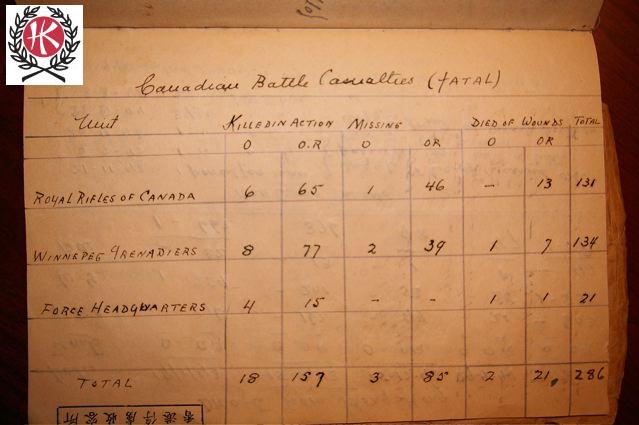 HK
Canadian Battle Casualties (FATAL)
Unit KILLED IN ACTION MISSING DIED OF WOUNDS TOTAL
O O.R O OR O OR
ROYAL RIFLES OF CANADA 6 65 1 46 - 13 131
WINNEPEG GRENADIERS 8 77 2 39 1 7 134
FORCE HEADQUARTERS 4 15 - - 1 1 21
TOTAL 18 157 3 85 2 21 286
香港俘虜收容所